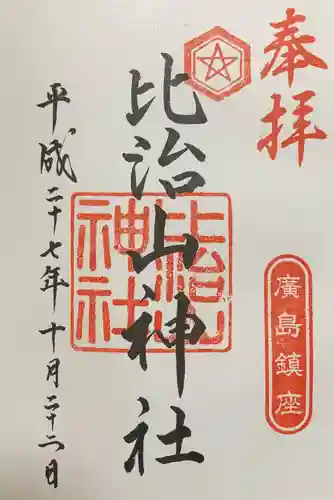 奉拝
廣島鎮座
比治山神社
比治山神社
平成二十七年十月二十二日